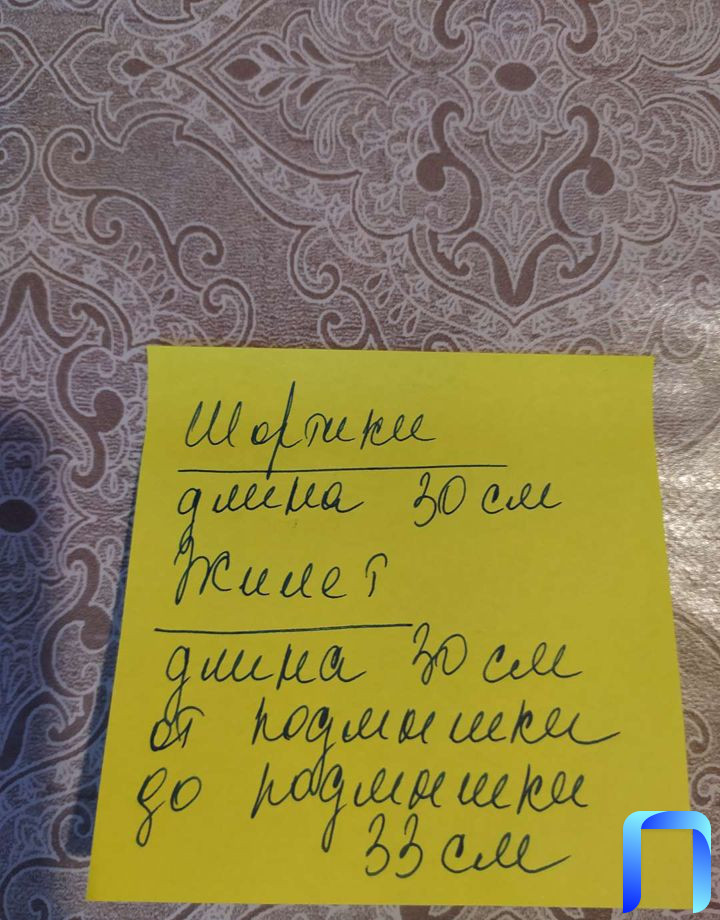 Шортики
длина 30 см
Жилет
длина 30 см
от подмышки
до подмышки
33 см